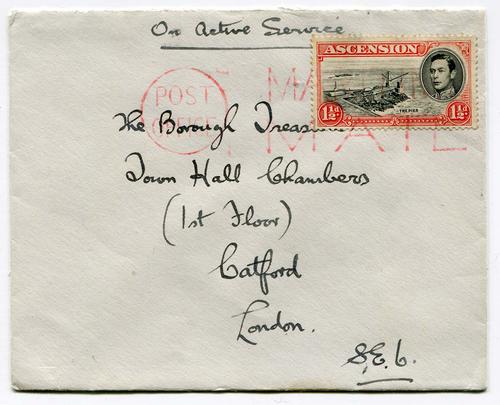 On Active Service
ASCENSION
THE PIER
1½d 1½d
POST
OFFICE
MA
MAIL
The Borough Treasurer
Town Hall Chambers
(1st Floor)
Catford
London.
S.E.6.